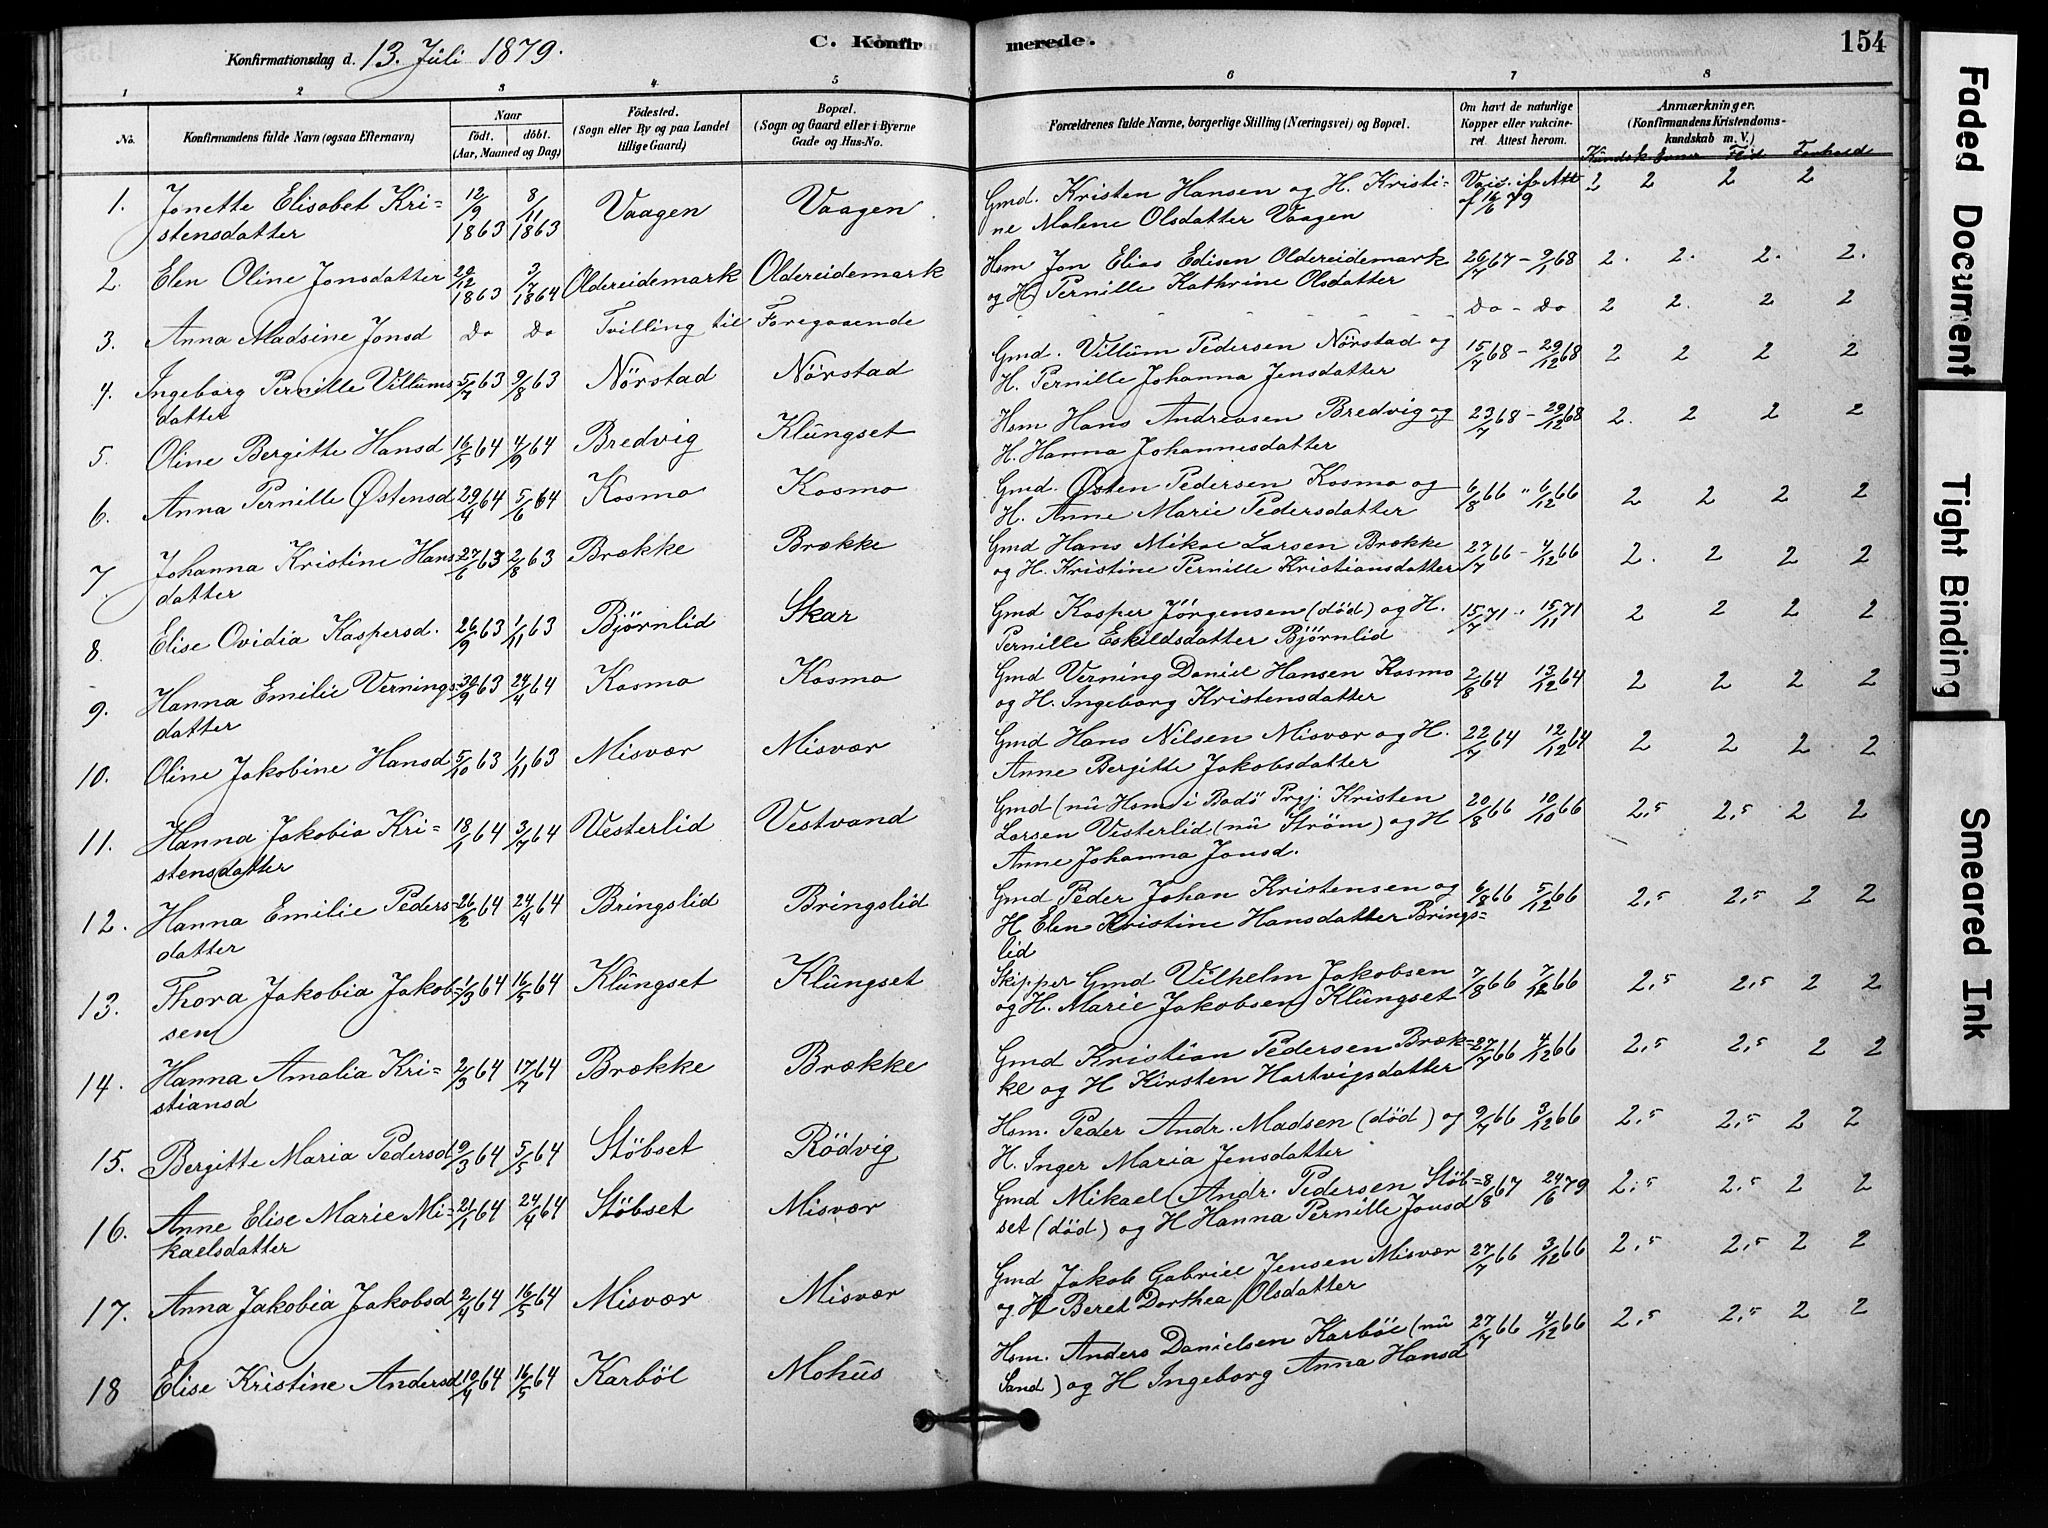 Konfirmationsdag d. 13. Juli 1879.
C. Konfirmerede.
154
1 2 3 4 5 6 7 8
No.
Konfirmandens fulde Navn (ogsaa Efternavn)
Naar
födt. döbt.
(Aar, Maaned og Dag)
Födested.
(Sogn eller By og paa Landet
tillige Gaard)
Bopæl.
(Sogn og Gaard eller i Byerne
Gade og Hus-No.
Forældrenes fulde Navne, borgerlige Stilling (Næringsvei) og Bopæl.
Om havt de naturlige
Kopper eller vakcine-
ret. Attest herom.
Anmærkninger.
(Konfirmandens Kristendoms-
kundskab m. V.)
Kundsk. Evner Flid Forhold
1. Jonette Elisabet Kri= 12/9 1863 8/11 1863 Vaagen Vaagen Gmd. Kristen Hansen og H. Kristi= Vaic. if. Att 2 2 2 2
stensdatter ne Malene Olsdatter Vaagen af 16/6 79
2. Elen Oline Jonsdatter 29/12 1863 3/7 1864 Oldereidemark Oldereidemark Hsm Jon Elias Edisen Oldereidemark 26/7 67 - 9/1 68 2. 2. 2. 2.
og H Pernille Kathrine Olsdatter
3. Anna Madsine Jonsd Do Do Tvilling til Foregaaende Do - Do 2 2. 2 2
4. Ingeborg Pernille Villums 5/7 63 9/8 63 Nörstad Nörstad Gmd. Villum Pedersen Nörstad og 15/7 68 - 29/12 68 2 2 2 2
datter H. Pernille Johanna Jensdatter
5. Oline Bergitte Hansd 16/5 64 4/9 64 Bredvig Klungset Hsm Hans Andreasen Bredvig og 23/7 68 - 29/12 68 2. 2 2 2
H. Hanna Johannesdatter
6. Anna Pernille Østensd 29/4 64 5/6 64 Kosmo Kosmo Gmd. Østen Pedersen Kosmo og 6/8 66 " 6/12 66 2 2 2 2
H. Anne Marie Pedersdatter
7 Johanna Kristine Hans 27/6 63 2/8 63 Brække Brække Gmd Hans Mikae Larsen Brække 27/7 66 - 4/12 66 2. 2 2 2
datter og H. Kristine Pernille Kristiansdatter
8. Elise Ovidia Kaspersd. 26/9 63 1/11 63 Björnlid Skar Gmd Kasper Jörgensen (död) og H. 15/7 71 " 15/11 71 2 2 2 2
Pernille Eskildsdatter Björnlid
9. Hanna Emilie Vernings- 30/9 63 24/4 64 Kosmo Kosmo Gmd Verning Daniel Hansen Kosmo 2/8 64 13/12 64 2 2 2 2
datter og H. Ingeborg Kristensdatter
10. Oline Jakobine Hansd 5/10 63 1/11 63 Misvær Misvær Gmd Hans Nilsen Misvær og H. 22/7 64 12/12 64 2 2 2 2
Anne Bergitte Jakobsdatter
11. Hanna Jakobia Kri= 18/1 64 3/7 64 Vesterlid Vestvand Gmd (nu Hsm i Bodö Prgj. Kristen 20/8 66 10/10 66 2,5 2,5 2 2
stensdatter Larsen Vesterlid (nu Ström) og H
Anne Johanna Jonsd.
12. Hanna Emilie Peders- 26/2 64 24/4 64 Bringslid Bringslid Gmd Peder Johan Kristensen og 6/8 66 5/12 66 2,5 2,5 2 2
datter H Elen Kristine Hansdatter Brings=
lid
13. Thora Jakobia Jakob= 1/3 64 16/5 64 Klungset Klungset Skipper Gmd Vilhelm Jakobsen 7/8 66 7/12 66 2,5 2,5 2 2
sen og H. Marie Jakobsen Klungset
14. Hanna Amalia Kri= 2/3 64 17/7 64 Brække Brække Gmd Kristian Pedersen Bræk= 27/7 66 4/12 66 2,5 2,5 2 2
stiansd ke og H Kirsten Hartvigsdatter
15. Bergitte Maria Pedersd 9/3 64 5/5 64 Stöbset Rödvig Hsm. Peder Andr. Madsen (död) og 9/7 66 3/12 66 2,5 2,5 2 2
H. Inger Maria Jensdatter
16. Anne Elise Marie Mi= 21/1 64 24/4 64 Stöbset Misvær Gmd Mikael Andr. Pedersen Stöb= 8/8 67 24/6 79 2,5 2,5 2 2
kaelsdatter set (död) og H Hanna Pernille Jonsd
17. Anna Jakobia Jakobsd 2/4 64 16/5 64 Misvær Misvær Gmd Jakob Gabriel Jensen Misvær 27/7 66 3/12 66 2,5 2,5 2 2
og H Beret Dorthea Olsdatter
18 Elise Kristine Andersd 10/4 64 16/5 64 Karböl Mohus Hsm. Anders Danielsen Karböl (nu 27/7 66 4/12 66 2,5 2,5 2 2
Sand) og H Ingeborg Anna Hansd
Faded Document
Tight Binding
Smeared Ink